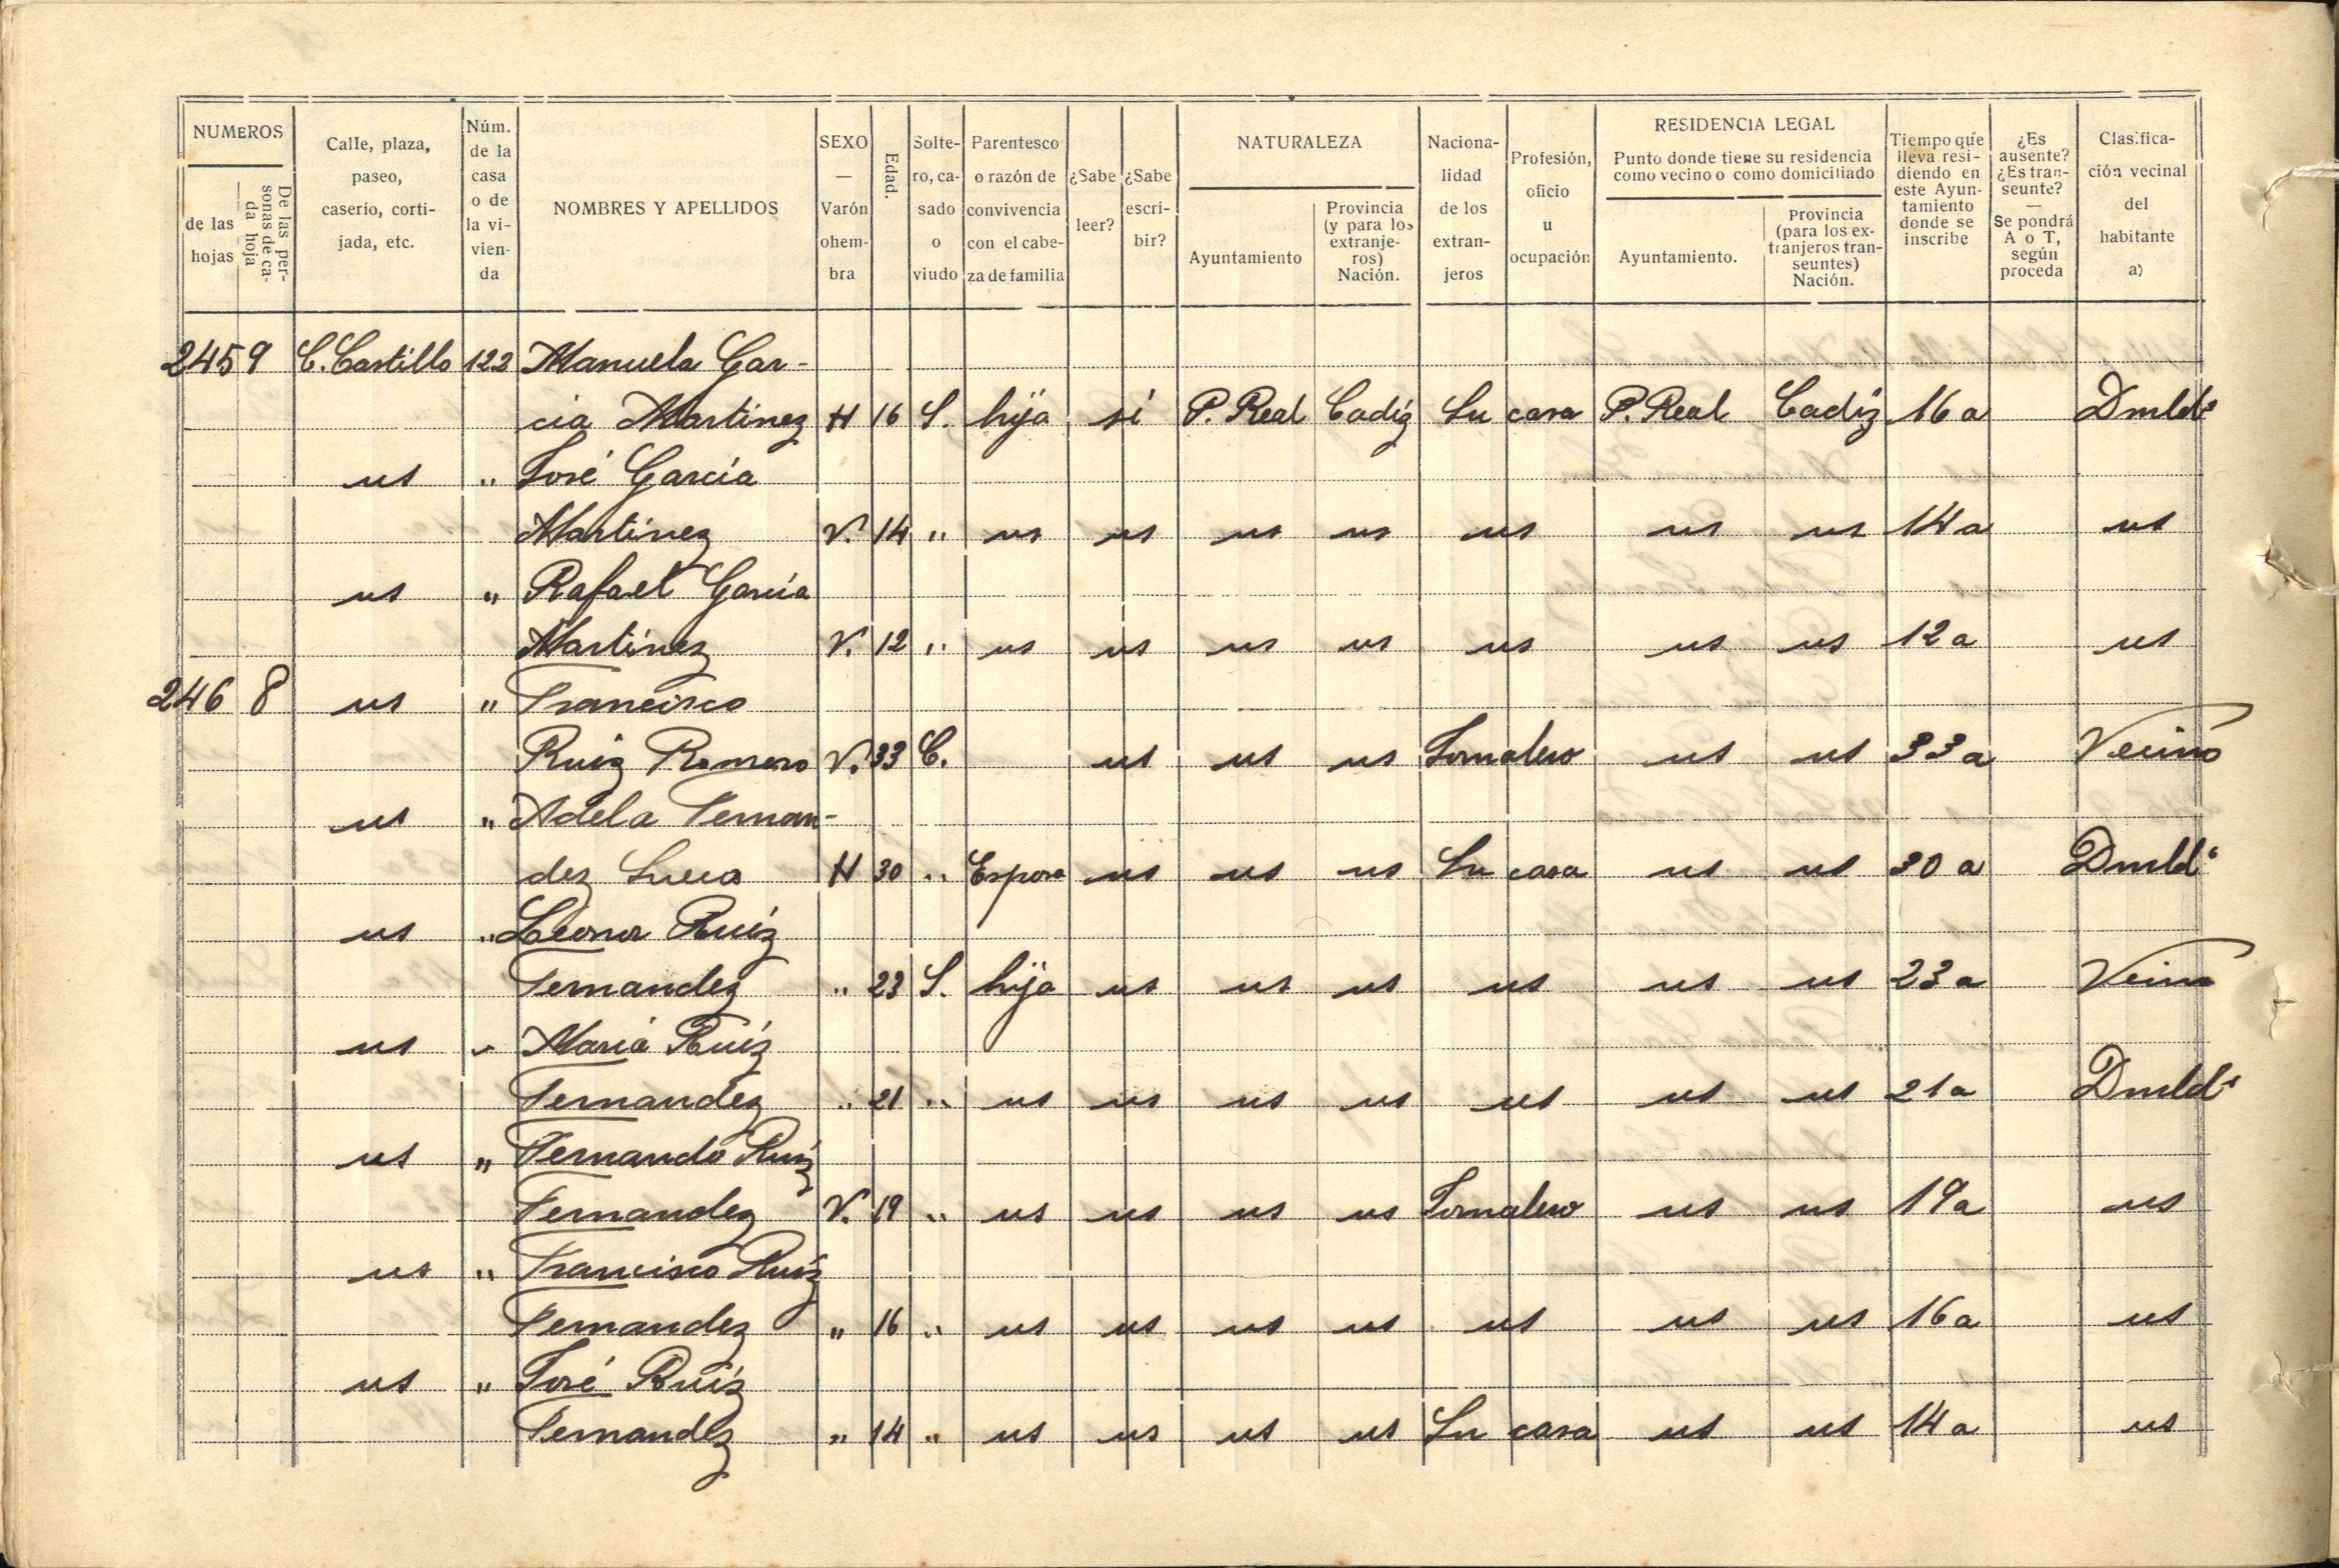 NUMEROS
de las hojas
De las personas de cada hoja
Calle, plaza, paseo, caserío, cortijada, etc.
Núm. de la casa o de la vivienda
NOMBRES Y APELLIDOS
SEXO — Varón ohembra
Edad.
Soltero, casado o viudo
Parentesco o razón de convivencia con el cabeza de familia
¿Sabe leer?
¿Sabe escribir?
NATURALEZA
Ayuntamiento
Provincia (y para los extranjeros) Nación.
Nacionalidad de los extranjeros
Profesión, oficio u ocupación
RESIDENCIA LEGAL
Punto donde tiene su residencia como vecino o como domiciliado
Ayuntamiento.
Provincia (para los extranjeros transeuntes) Nación.
Tiempo que lleva residiendo en este Ayuntamiento donde se inscribe
¿Es ausente? ¿Es transeunte? — Se pondrá A o T, según proceda
Clasificación vecinal del habitante a)
245 9 C. Castillo 122 Manuela Gar-
cia Martinez H 16 S. hija si P. Real Cadiz Su casa P. Real Cadiz 16 a Dmldº
us " José García
Martinez V. 14 " us us us us us us us 14 a us
us " Rafael García
Martinez V. 12 " us us us us us us us 12 a us
246 8 us " Francisco
Ruiz Romero V. 33 C. us us us Jornalero us us 33 a Vecino
us " Adela Fernan-
dez H 30 " Esposa us us us Su casa us us 30 a Dmldº
us " Leonor Ruíz
Fernandez " 23 S. hija us us us us us us 23 a Vecino
us " María Ruíz
Fernandez " 21 " us us us us us us us 21 a Dmldº
us " Fernando Ruiz
Fernandez V. 19 " us us us us Jornalero us us 19 a us
us " Francisco Ruíz
Fernandez " 16 " us us us us us us us 16 a us
us " José Ruíz
Fernandez " 14 " us us us us Su casa us us 14 a us